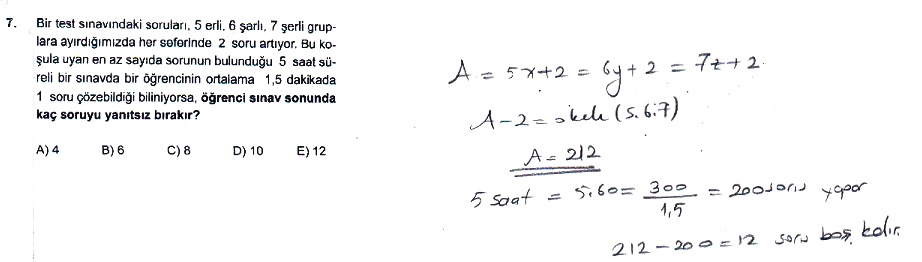 7. Bir test sınavındaki soruları, 5 erli, 6 şarlı, 7 şerli grup-
lara ayırdığımızda her seferinde 2 soru artıyor. Bu ko-
şula uyan en az sayıda sorunun bulunduğu 5 saat sü-
reli bir sınavda bir öğrencinin ortalama 1,5 dakikada
1 soru çözebildiği biliniyorsa, öğrenci sınav sonunda
kaç soruyu yanıtsız bırakır?
A) 4 B) 6 C) 8 D) 10 E) 12
A = 5x+2 = 6y+2 = 7z+2
A-2 = okek (5.6.7)
A = 212
5 saat = 5.60 = 300/1,5 = 200 soru yapar
212-200 = 12 soru boş kalır.